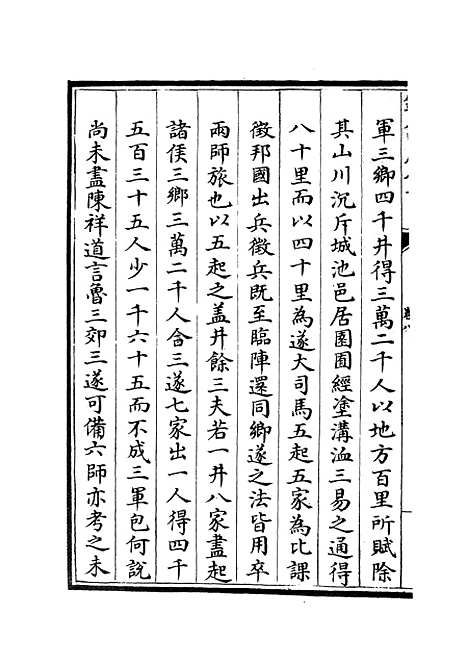 軍三鄉四千井得三萬二千人以地方百里所賦除
其山川沉斥城池邑居園囿經塗溝洫三易之通得
八十里而以四十里為遂大司馬五起五家為比課
徵邦國出兵徵兵既至臨陣還同鄉遂之法皆用卒
兩師旅也以五起之盖井餘三夫若一井八家盡起
諸侯三鄉三萬二千人含三遂七家出一人得四千
五百三十五人少一千六十五而不成三軍包何説
尚未盡陳祥道言魯三郊三遂可備六師亦考之未